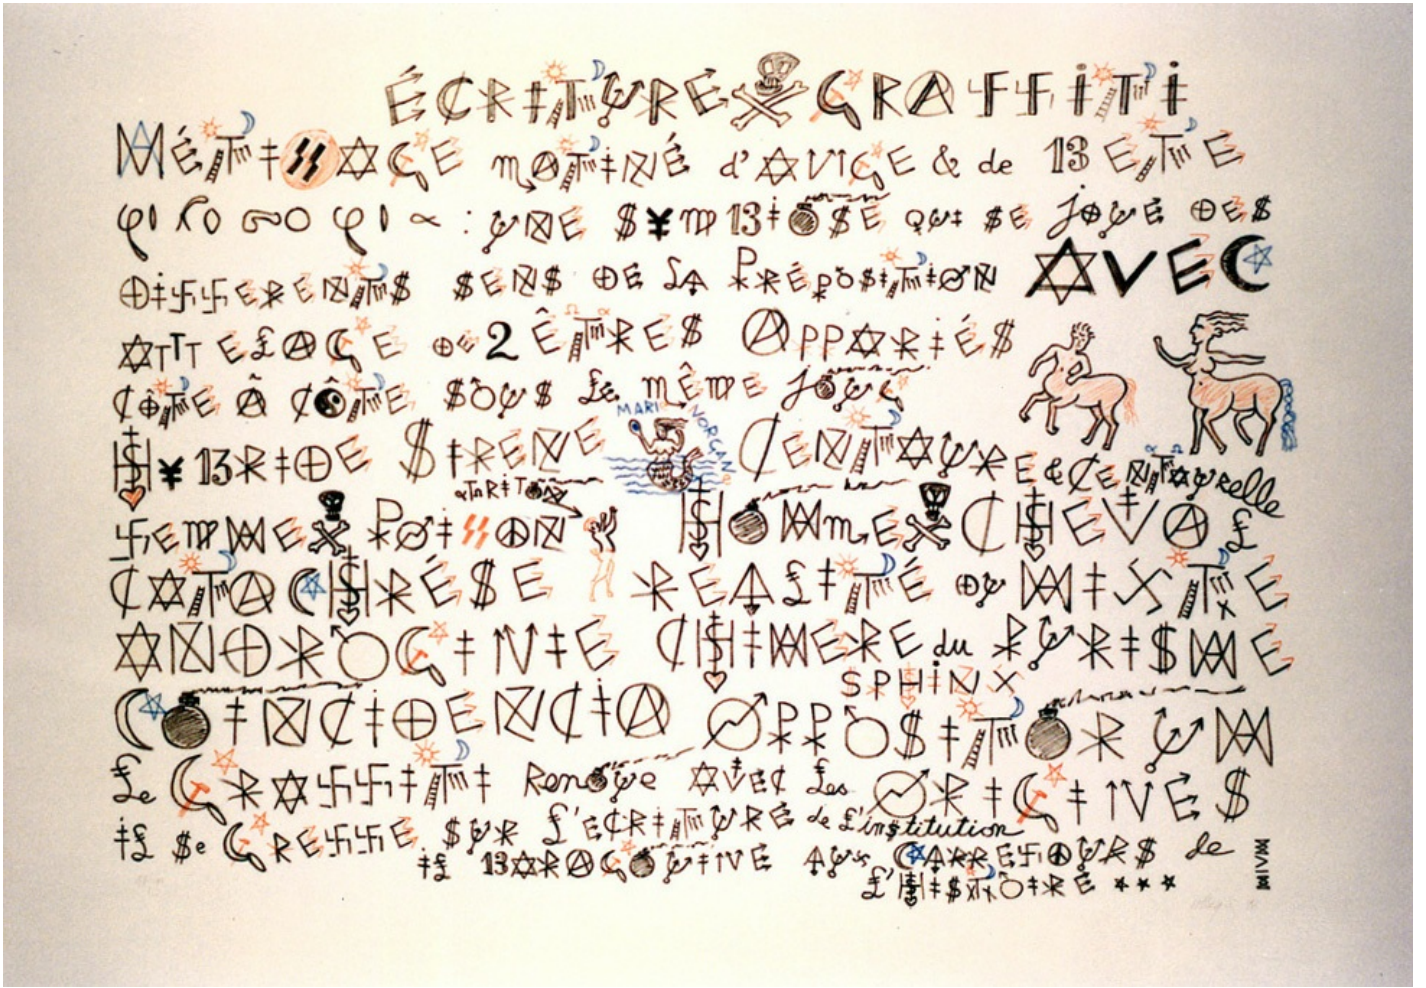 ÉCRITURE GRAFFITI
MÉTISSAGE MATINÉ d'ANGE & de BETE
φιλοσοφια : UNE SYMBIOSE QUI SE JOUE DES
DIFFERENTS SENS DE LA PRÉPOSITION AVEC
ATTELAGE DE 2 ÊTRES APPARIÉS
CÔTE À CÔTE SOUS LE MÊME JOUG
HYBRIDE SIRENE MARI MORGANE CENTAURE & CENTAURELLE
FEMME POISSON HOMME CHEVAL
CATACHRÉSE REALITÉ OU MIXTE
ANDROGINE CHIMERE du PURISME
SPHINX
COINCIDENCIA OPPOSITORUM
Le GRAFFITI Renoue AVEC Les ORIGINES
IL Se GREFFE SUR L'ECRITURE de L'institution
IL BARAGOUINE AUX CARREFOURS de
L'HISTOIRE ***